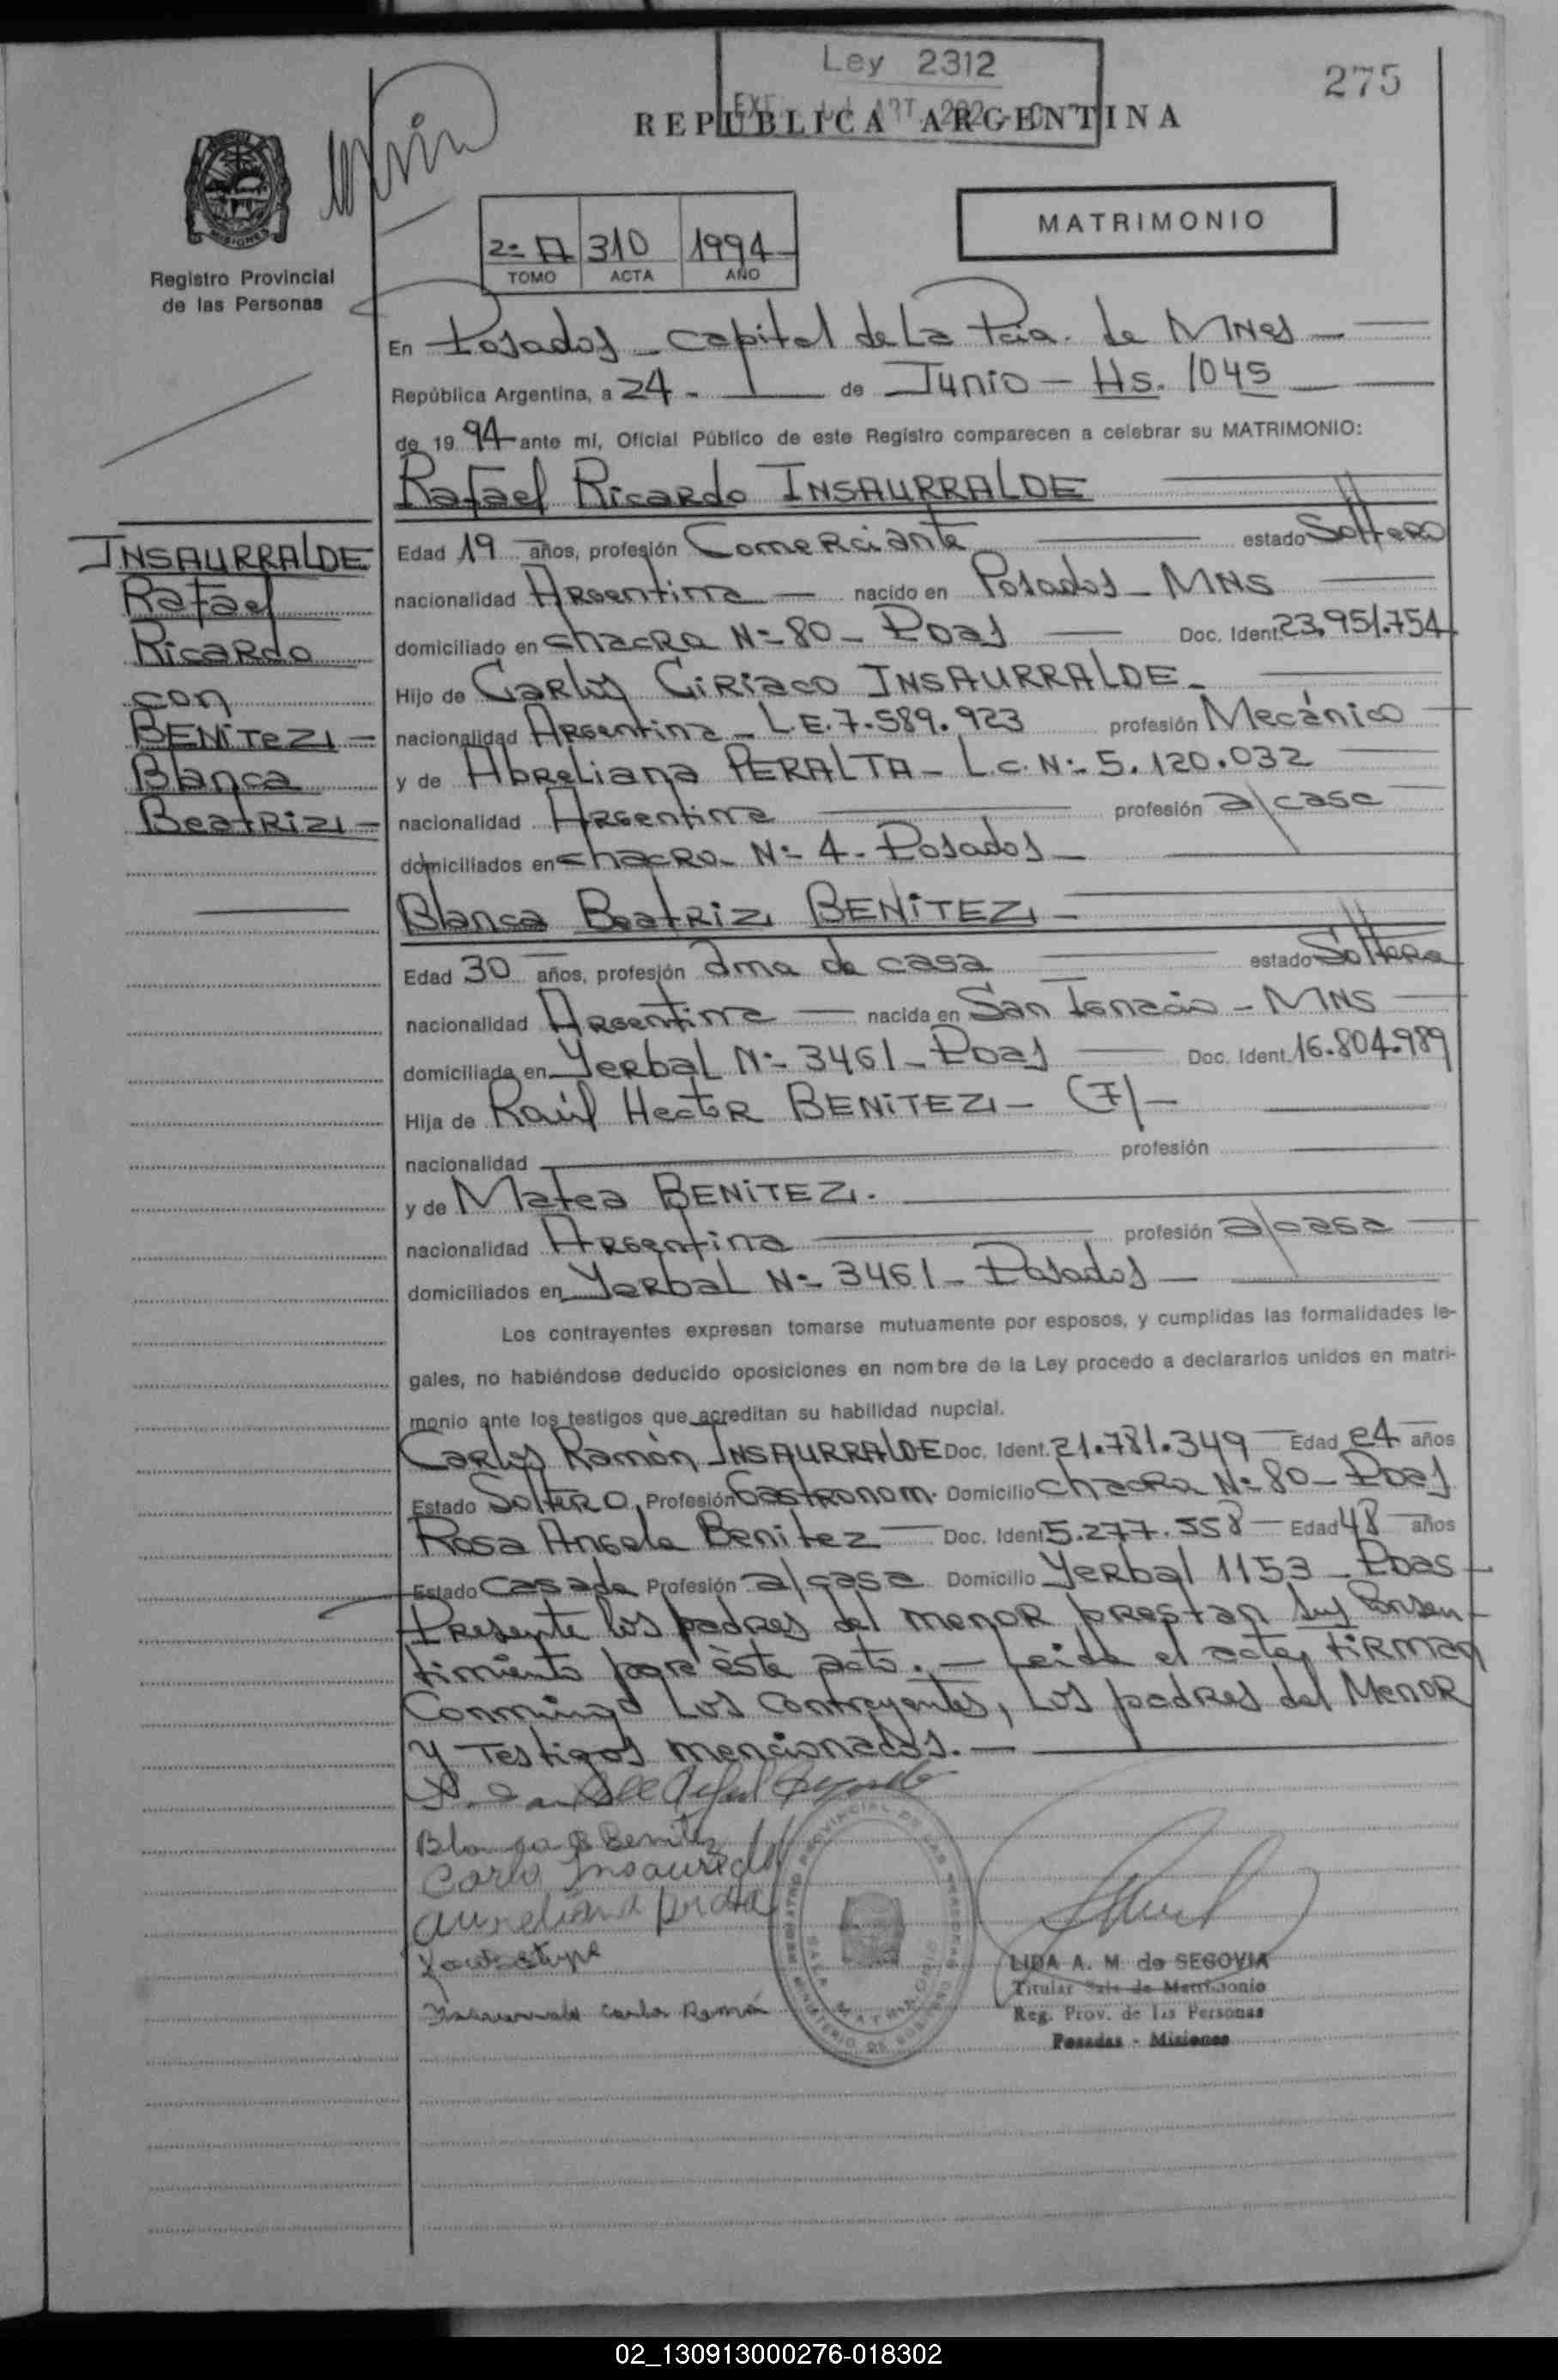 Ley 2312
275
REPUBLICA ARGENTINA
MISIONES
Registro Provincial
de las Personas
2º A 310 1994
TOMO ACTA AÑO
MATRIMONIO
En Posadas - Capital de La Pcia. de MNes -
República Argentina, a 24 - de Junio - Hs. 1045
de 19 94 ante mi, Oficial Público de este Registro comparecen a celebrar su MATRIMONIO:
Rafael Ricardo INSAURRALDE
INSAURRALDE
Rafael
Ricardo
con
BENITEZ -
Blanca
Beatriz -
Edad 19 años, profesión Comerciante estado Soltero
nacionalidad Argentina - nacido en Posadas - MNS
domiciliado en chacra Nº 80 - Pdas Doc. Ident. 23.951.754
Hijo de Carlos Ciriaco INSAURRALDE -
nacionalidad Argentina - L.E. 7.589.923 profesión Mecánico
y de Abreliana PERALTA - L.C. Nº 5.120.032
nacionalidad Argentina profesión a/casa
domiciliados en chacra Nº 4 - Posadas -
Blanca Beatriz BENITEZ -
Edad 30 años, profesión ama de casa estado Soltera
nacionalidad Argentina - nacida en San Ignacio - MNS
domiciliada en Yerbal Nº 3461 - Pdas Doc. Ident. 16.804.989
Hija de Raúl Hector BENITEZ - (F) -
nacionalidad profesión
y de Matea BENITEZ.
nacionalidad Argentina profesión a/casa
domiciliados en Yerbal Nº 3461 - Posadas -
Los contrayentes expresan tomarse mutuamente por esposos, y cumplidas las formalidades le-
gales, no habiéndose deducido oposiciones en nombre de la Ley procedo a declararlos unidos en matri-
monio ante los testigos que acreditan su habilidad nupcial.
Carlos Ramón INSAURRALDE Doc. Ident. 21.781.349 Edad 24 años
Estado Soltero Profesión Gastronom. Domicilio chacra Nº 80 - Pdas
Rosa Angela Benitez Doc. Ident. 5.277.558 Edad 48 años
Estado Casada Profesión a/casa Domicilio Yerbal 1153 - Pdas -
Presente los padres del menor prestan sus Consen-
timiento para éste acto. - Leida el acta, firman
Conmingo Los contrayentes, Los padres del Menor
y Testigos mencionados. -
Blanca B Benitez
Carlo Insaurralde
Aureliana Peralta
Insaurralde Carlos Ramón
REGISTRO PROVINCIAL DE LAS PERSONAS
MINISTERIO DE GOBIERNO
SALA MATRIMONIO
LIDA A. M. de SEGOVIA
Titular Sala de Matrimonio
Reg. Prov. de las Personas
Posadas - Misiones
02_130913000276-018302